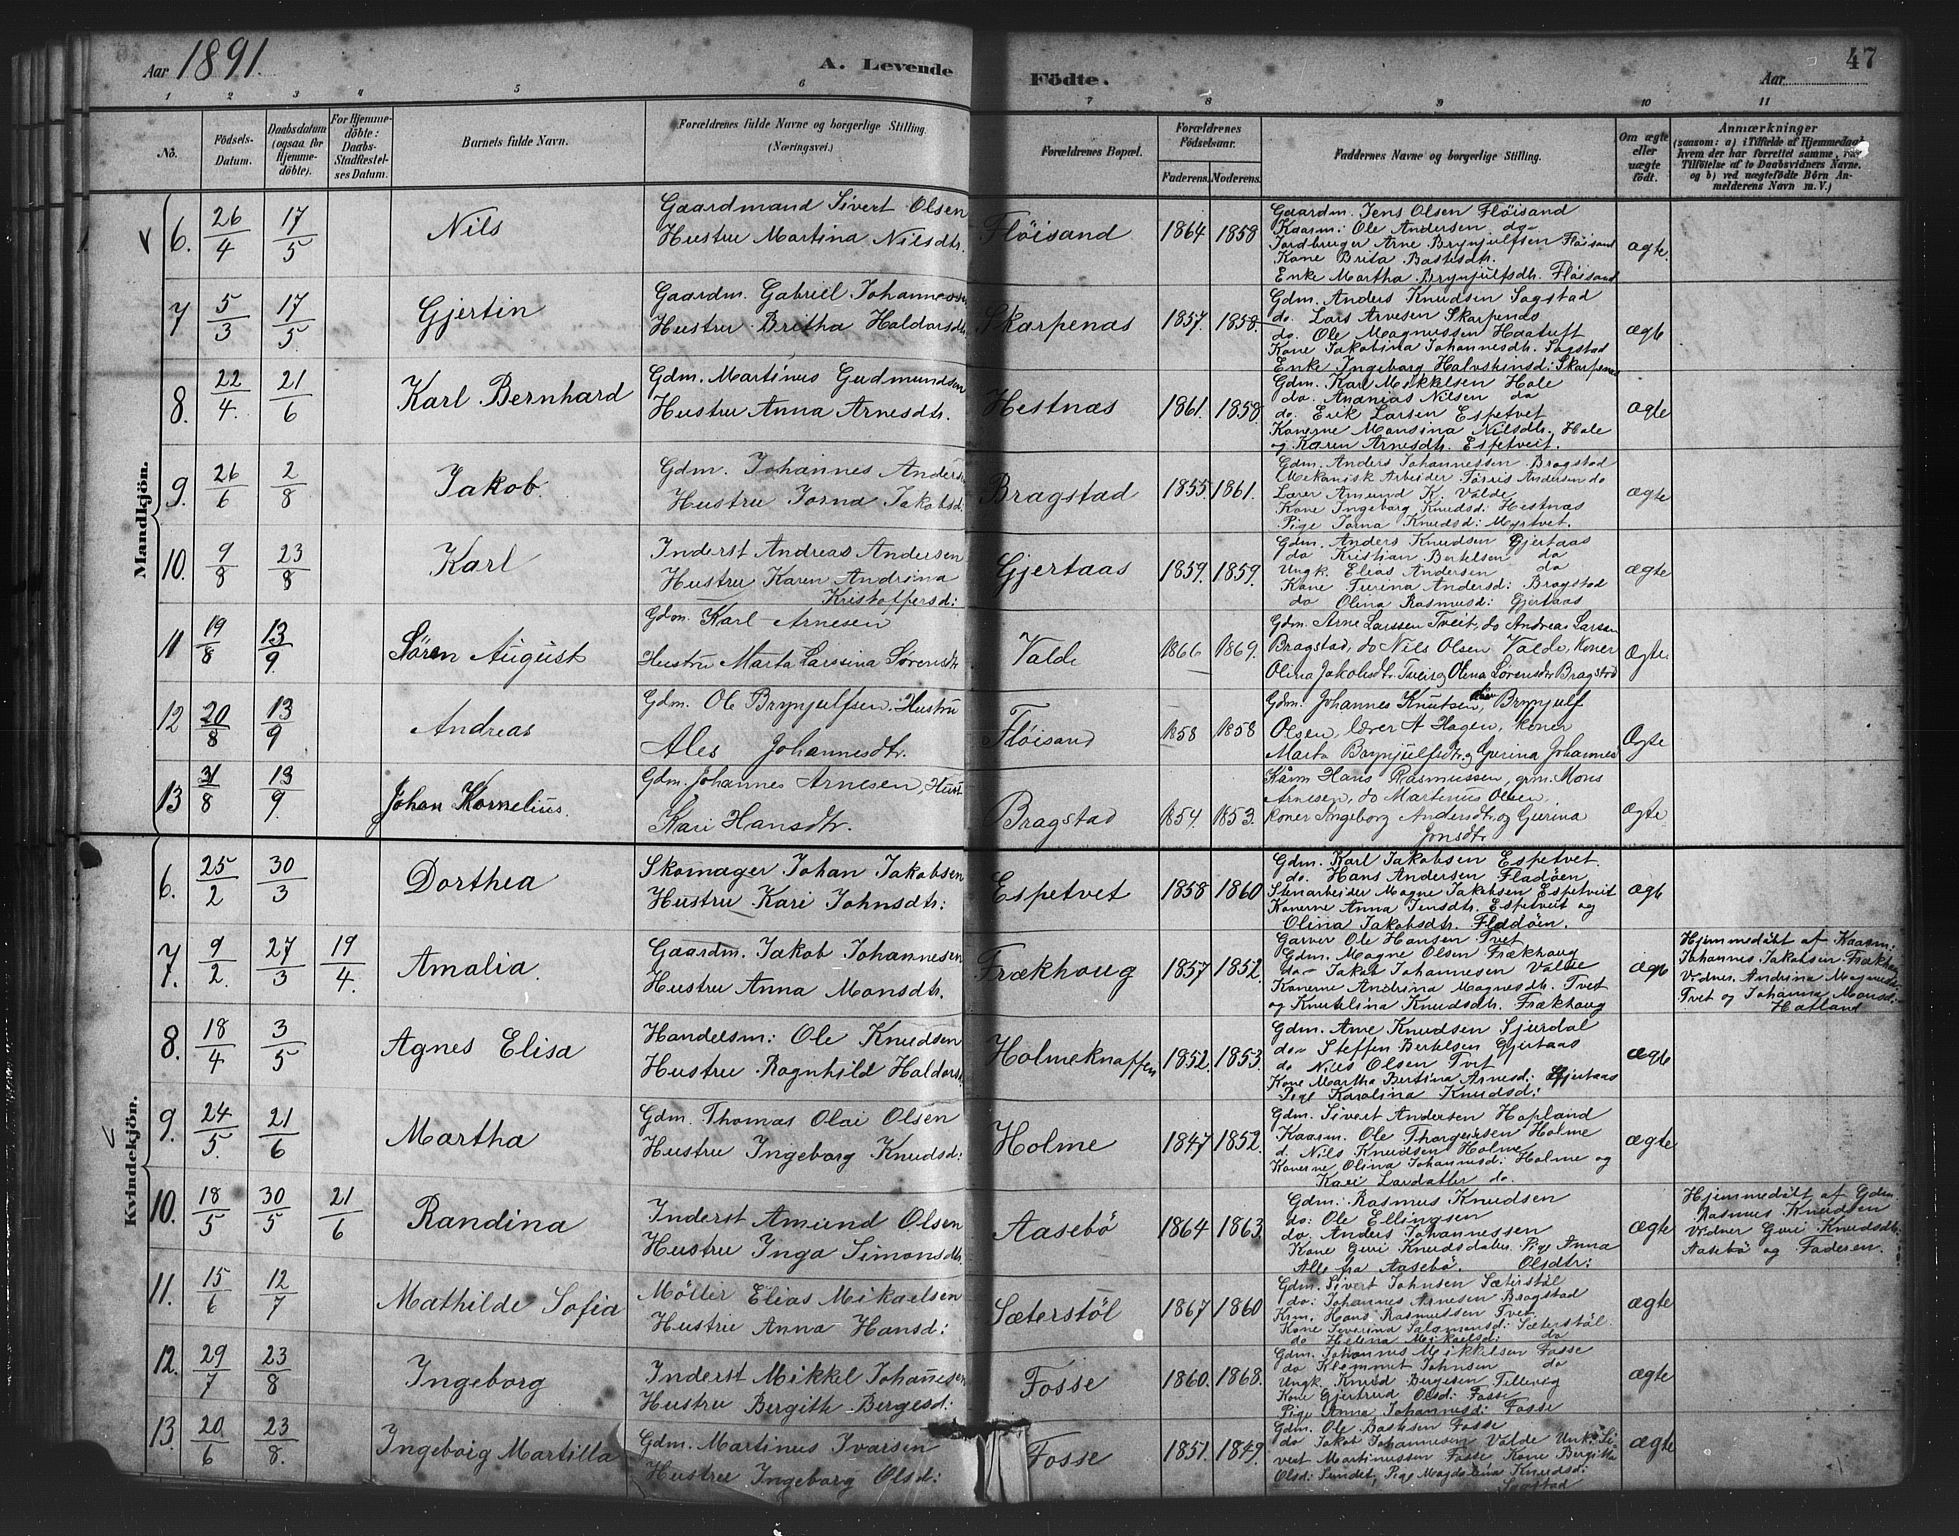 Aar 1891.
A. Levende Födte.
Aar
47
1 2 3 4 5 6 7 8 9 10 11
No.
Födsels-Datum.
Daabsdatum (ogsaa for Hjemme-döbte).
For Hjemme-döbte: Daabs-Stadfæstel-ses Datum.
Barnets fulde Navn.
Forældrenes fulde Navne og borgerlige Stilling. (Næringsvei.)
Forældrenes Bopæl.
Forældrenes Födselsaar.
Faderens. Moderens.
Faddernes Navne og borgerlige Stilling.
Om ægte eller uægte födt.
Anmærkninger
(saasom: a) i Tilfælde af Hjemmedaab hvem der har forrettet samme,
Tilföielse af to Daabsvidners Navne.
og b) ved uægtefödte Börn An-
melderens Navn m. V.)
Mandkjön.
6. 26/4 17/5 Nils
Gaardmand Sivert Olsen
Hustru Martina Nilsdtr.
Flöisand 1864 1858
Gaardm. Jens Olsen Flöisand
Kaarm: Ole Andersen do
Jordbruger Arne Brynjulfsen Flöisand
Kone Brita Bastesdtr.
Enke Martha Brynjulfsdtr. Flöisand
ægte.
7 5/3 17/5 Gjertin
Gaardm. Gabriel Johannessen
Hustru Britha Haldorsdtr.
Skarpenas 1857. 1858.
Gdm. Anders Knudsen Sagstad
do. Lars Arvesen Skarpenas
do. Ole Magnussen Haatuft
Kone Jakobina Johannesdtr. Sagstad
Enke Ingeborg Halvstensd: Skarpenas
ægte
8. 22/4. 21/6 Karl Bernhard
Gdm. Martinus Gudmundsen
Hustru Anna Arnesdtr.
Hestnas 1861. 1858.
Gdm. Karl Mikkelsen Hole
do. Ananias Nilsen do
do. Erik Larsen Espetvet
Konerne Monsina Nilsdtr. Hole
og Karen Arnesdtr. Espetveit.
ægte
9. 26/6 2/8 Jakob.
Gdm. Johannes Anders
Hustru Jorna Jakobsd:
Bragstad 1855. 1861.
Gdm. Anders Johannessen Bragstad
Mekanisk Arbeider Törris Andersen do
Lærer Amund K. Valde
Kone Ingeborg Knudsd: Hestnas
Pige Jorna Knudsd:
ægte
10. 9/8 23/8 Karl
Inderst Andreas Andersen
Hustru Karen Andrina
Kristoffersd:
Gjertaas 1859. 1859.
Gdm. Anders Knudsen Gjertaas
do Kristian Bertelsen do
Ungk. Elias Andersen do
Kone Turina Andersd: Bragstad
do Olina Rasmusd: Gjertaas
ægte
11 19/8 13/9. Sören August
Gdm. Karl Arnesen
Hustru Marta Larsina Sörensdtr
Valde 1866 1869.
Gdm. Arne Larssen Tveit, do Andreas Larsen
Bragstad, do Nils Olsen Valde, Koner
Olina Jakobsdtr Tveit og Olina Sörensdtr Bragstad
Ægte.
12 20/8 13/9 Andreas
Gdm. Ole Brynjulfsen, Hustru
Ales Johannesdtr.
Flöisand 1858 1858
Gdm. Johannes Knutsen, Brynjulf
Olsen, lærer A Hagen, Koner
Marta Brynjulfsdtr. og Gurina Johannes
Ægte
13 31/8 13/9. Johan Kornelius.
Gdm. Johannes Arnesen, Hust
Kari Hansdtr.
Bragstad 1854. 1853.
Kårm Hans Rasmussen, grm. Mons
Arnesen, do Martinus Olsen,
Koner Ingeborg Andersdtr. og Gurina
Jonsdtr
Ægte
Kvindekjön.
6. 25/2 30/3 Dorthea
Skomager Johan Jakobsen
Hustru Kari Johnsdtr:
Espetvet 1858 1860
Gdm. Karl Jakobsen Espetvet.
do. Hans Andersen Fladöen.
Stenarbeider Magne Jakobsen Espetveit
Konerne Anna Jensdtr. Espetveit og
Olina Jakobsdtr. Fladöen.
ægte
7. 9/2. 27/3 19/4. Amalia.
Gaardm. Jakob Johannesen
Hustru Anna Monsdtr.
Frækhoug 1857 1852.
Garver Ole Hansen Tvet
Gdm. Magne Olsen Frækhaug
do Jakob Johannesen Valde
Konerne Andrina Magnesdtr. Tvet
og Knutslina Knudsdtr. Frækhaug
ægte
Hjemmedöbt af Kaarm:
Johannes Jakobsen Frækh
Vidner. Andrina Magnesdtr
Tvet og Johanna Monsd:
Hatland
8. 18/4 3/5 Agnes Elisa
Handelsm: Ole Knudsen
Hustru Ragnhild Haldorsd
Holmeknappen 1852. 1853.
Gdm. Arne Knudsen Sjurdal
do Steffen Bertelsen Gjertaas
do Nils Olsen Tvet
Kone Martha Bertina Arnesd: Gjertaas
Pige Karolina Knudsd:
ægte
9. 24/5. 21/6 Martha
Gdm. Thomas Olai Olsen
Hustru Ingeborg Knudsd:
Holme 1847 1852.
Gdm. Sivert Andersen Hopland
Kaarm. Ole Thorgersen Holme
d. Nils Knudsen Holme
Konerne Olina Johannesd: Holme og
Kari Larsdatter do.
ægte
10. 18/5 30/5 21/6 Randina
Inderst Amund Olsen
Hustru Inga Simonsdtr.
Aasebö 1864 1863.
Gdm: Rasmus Knudsen
do: Ole Ellingsen
do. Anders Johannessen
Kone Guri Knudsdatter Pige Anna
Alle fra Aasebö. Olsdtr:
ægte
Hjemmedöbt af Gdm.
Rasmus Knudsen
Vidner Guri Knudsdtr.
Aasebö og Faderen.
11. 15/6 12/7 Mathilde Sofia
Möller Elias Mikaelsen
Hustru Anna Hansd:
Sæterstöl 1867 1860
Gdm. Sivert Johnsen Sæterstöl
do: Johannes Arnesen Bragstad
Krm. Hans Rasmussen Tvet
Kone Severina Salamonsd: Sæterstöl.
do Helena Mikaelsd: do
ægte
12. 29/7 23/8 Ingeborg
Inderst Mikkel Johannesen
Hustru Bergith Bergesd:
Fosse 1860. 1868.
Gdm. Johannes Mikkelsen Fosse
do Klemmet Johnsen do
Ungk. Knud Bergesen Tillevig
Kone Gjertrud Olsd: Fosse
Pige Anna Johannesd: Fosse
ægte
13. 20/6 23/8. Ingeborg Martilla
Gdm. Martinus Ivarsen
Hustru Ingeborg Olsd:
Fosse 1851. 1849.
Gdm. Ole Bastesen Fosse
do Jakob Johannesen Valde Unk: Si
vert Martinussen Fosse Kone Bergitta
Olsd: Sundet, Pige Magdalena Knudsd:
Sagstad
ægte